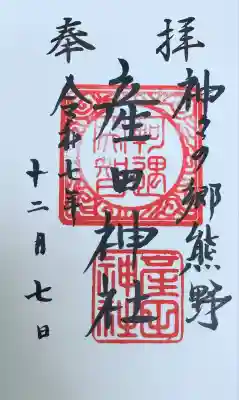 奉拝
神々の郷熊野
産田神社
令和七年
十二月七日
産田
神社